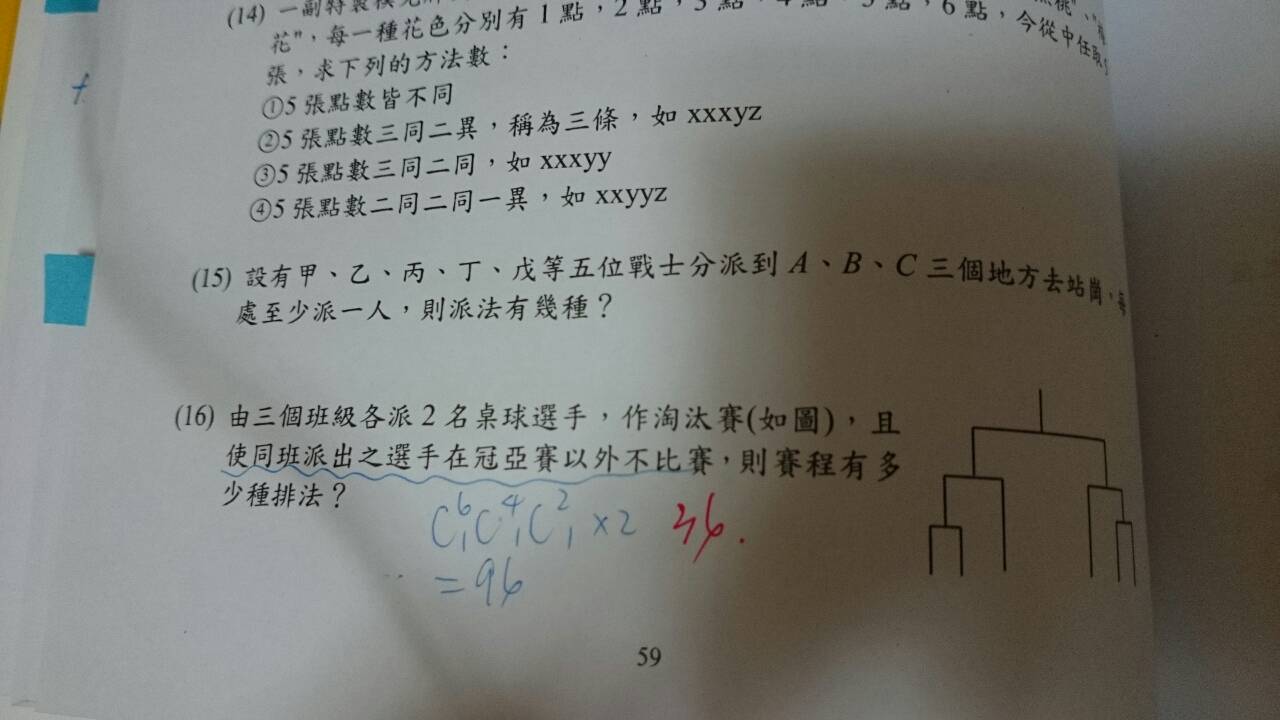 (14) 一副特製撲克
花"，每一種花色分別有1點，2點，3點，4點，5點，6點，今從中任取5
張，求下列的方法數：
①5張點數皆不同
②5張點數三同二異，稱為三條，如xxxyz
③5張點數三同二同，如xxxyy
④5張點數二同二同一異，如xxyyz
(15) 設有甲、乙、丙、丁、戊等五位戰士分派到A、B、C三個地方去站崗，每
處至少派一人，則派法有幾種？
(16) 由三個班級各派2名桌球選手，作淘汰賽(如圖)，且
使同班派出之選手在冠亞賽以外不比賽，則賽程有多
少種排法？
C⁶₁C⁴₁C²₁×2 36.
=96
59